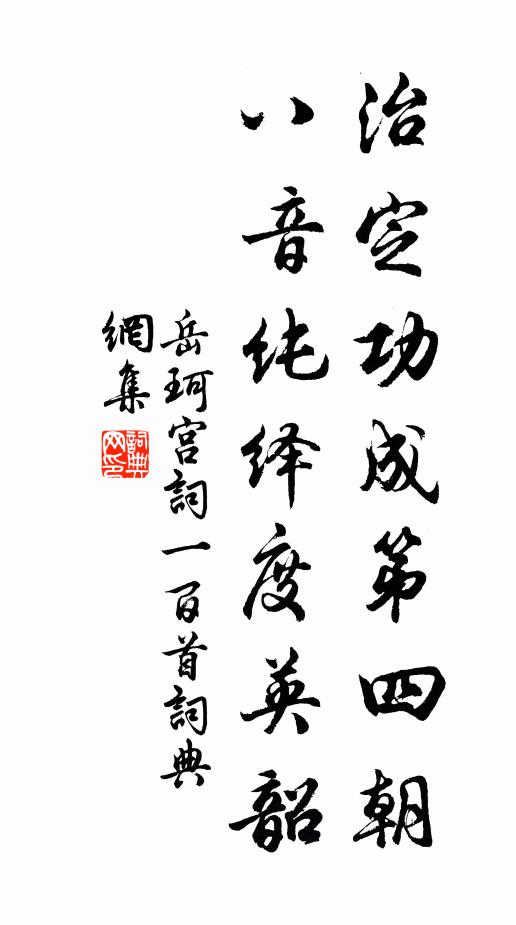 治定功成第四朝
八音纯绎度英韶
岳珂宫詞一百首詞典
網集
詞典网印